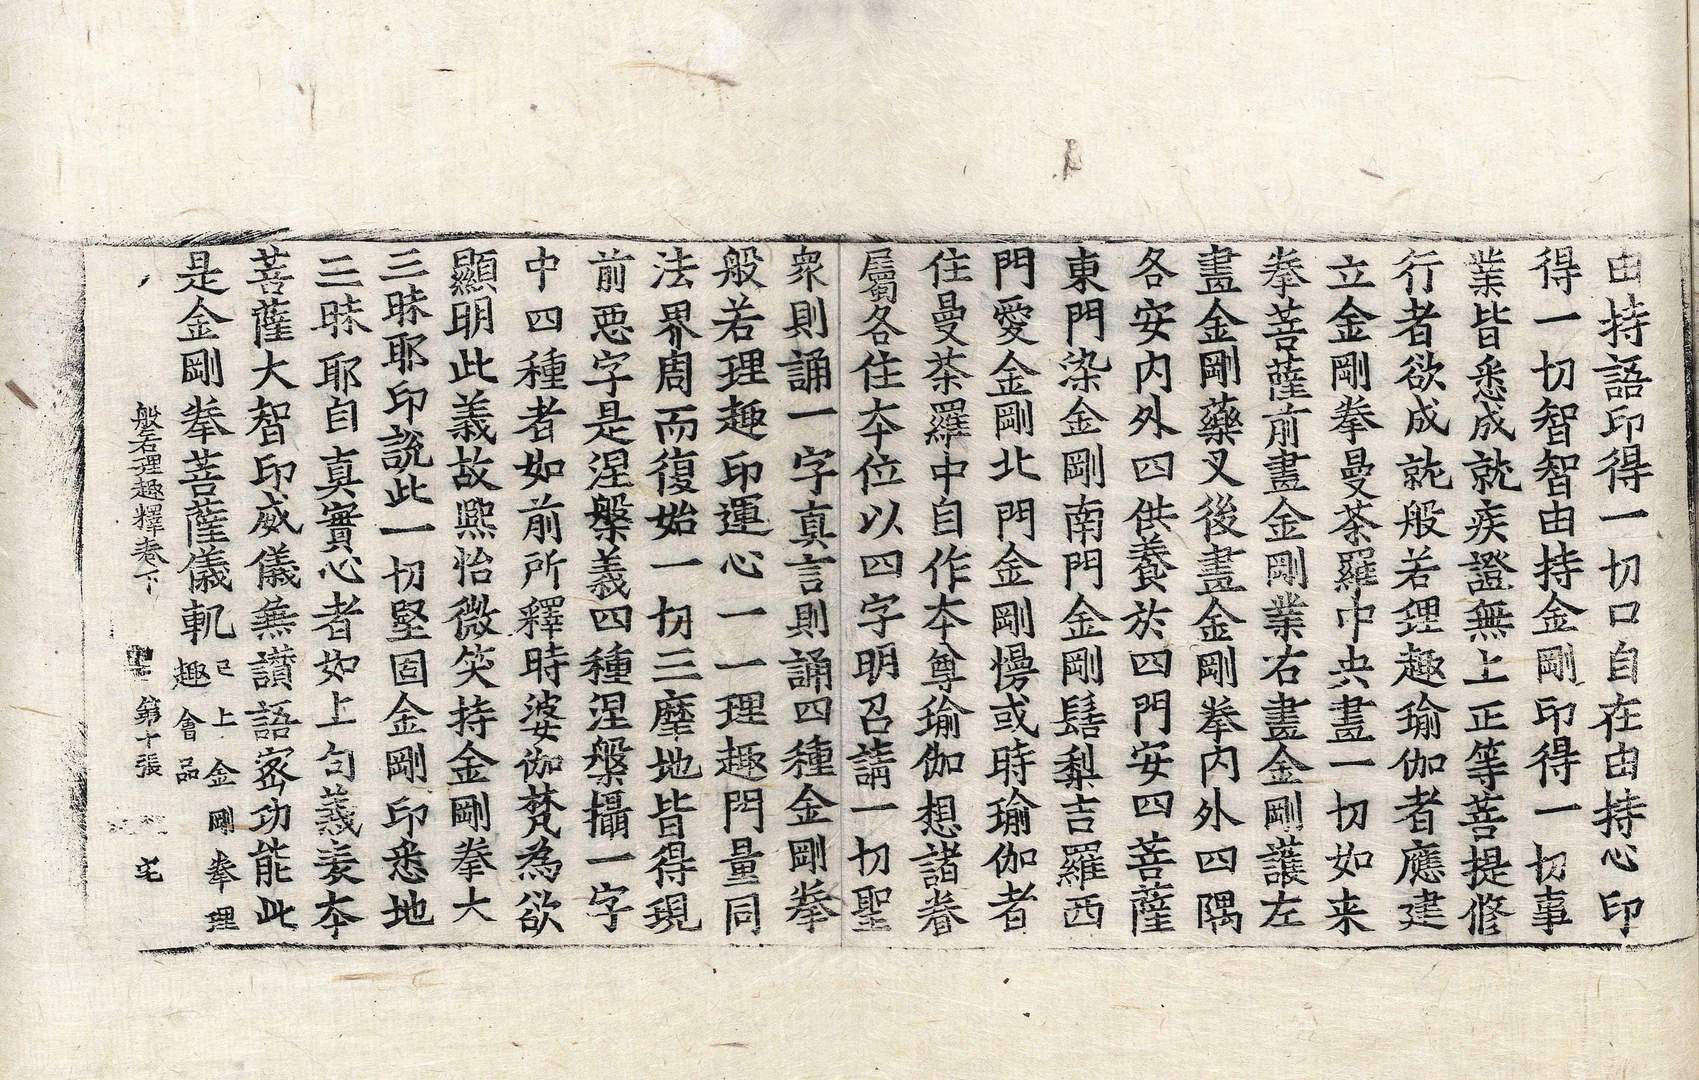 由持語印得一切口自在由持心印
得一切智智由持金剛印得一切事
業皆悉成就疾證無上正等菩提修
行者欲成就般若理趣瑜伽者應建
立金剛拳曼荼羅中央畫一切如来
拳菩薩前畫金剛業右畫金剛護左
畫金剛藥叉後畫金剛拳内外四隅
各安内外四供養於四門安四菩薩
東門染金剛南門金剛髻梨吉羅西
門愛金剛北門金剛慢或時瑜伽者
住曼荼羅中自作本尊瑜伽想諸眷
屬各住本位以四字明召請一切聖
衆則誦一字真言則誦四種金剛拳
般若理趣印運心一一理趣門量同
法界周而復始一切三摩地皆得現
前惡字是涅槃義四種涅槃攝一字
中四種者如前所釋時婆伽梵為欲
顯明此義故熙怡微笑持金剛拳大
三昧耶印説此一切堅固金剛印悉地
三昧耶自真實心者如上句義裏本
菩薩大智印威儀無讃語密功能此
是金剛拳菩薩儀軌已上金剛拳理
趣會品
般若理趣釋卷下 第十張 宅